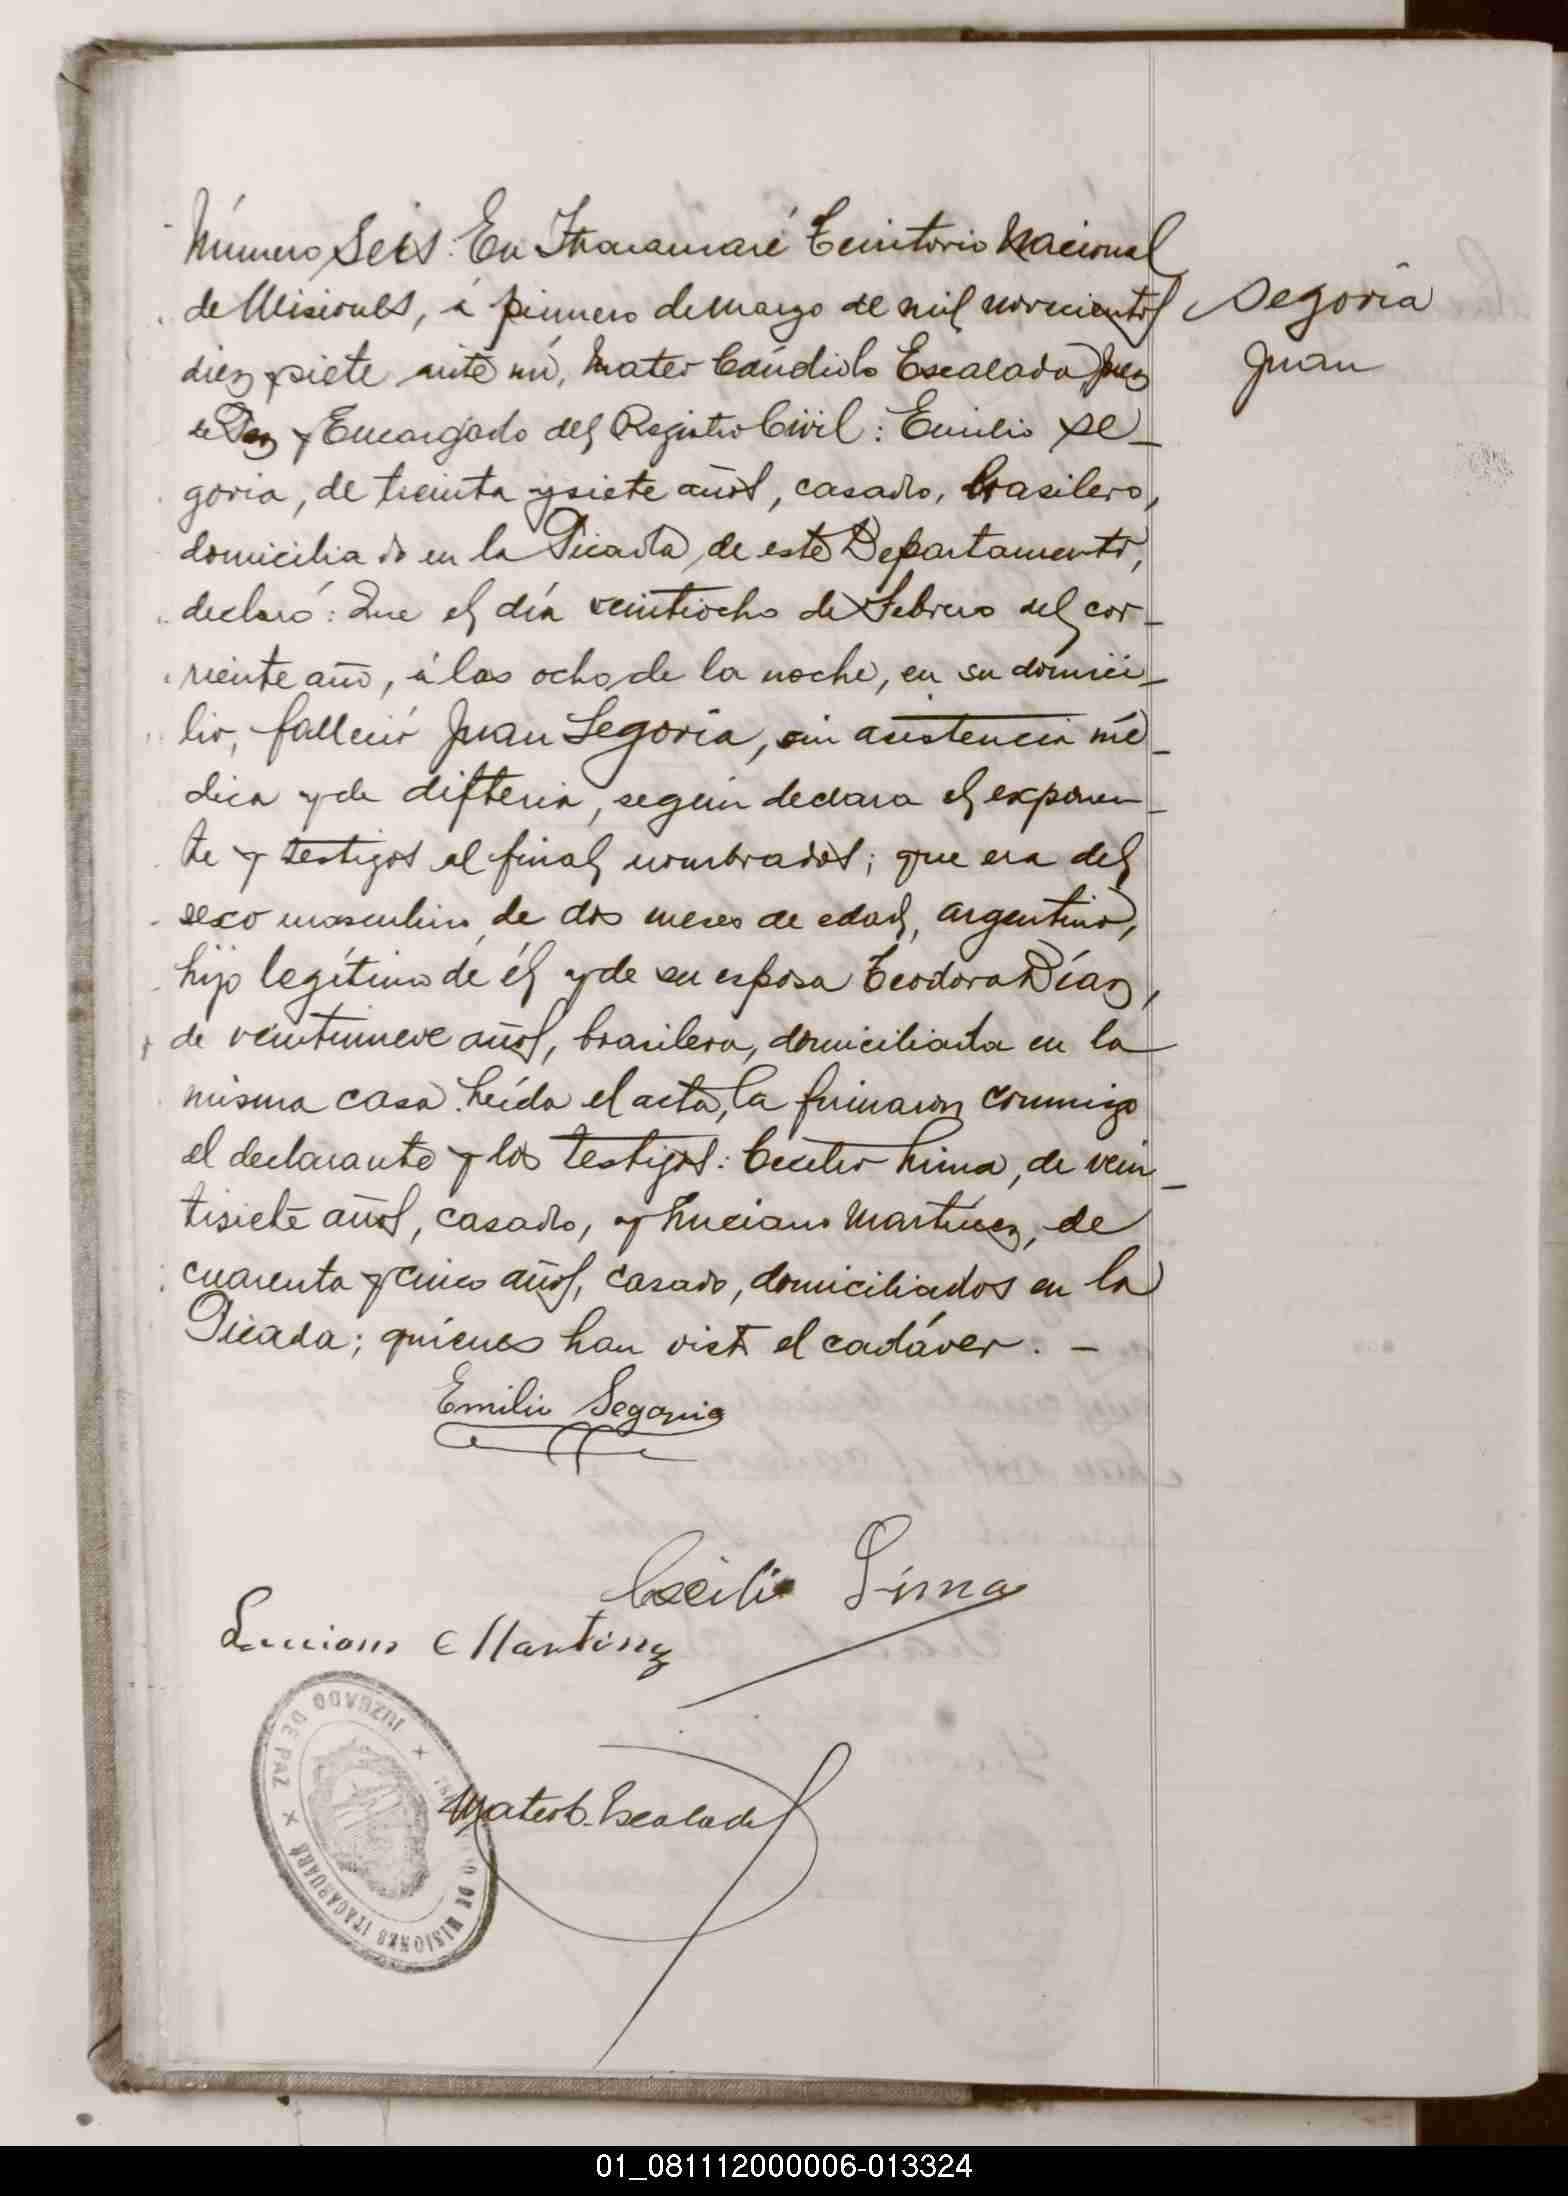 Número Seis: En Itacaruaré Territorio Nacional
de Misiones, á primero de marzo de mil novecientos
diez y siete ante mí, Mateo Cándido Escalada Juez
de Paz y Encargado del Registro Civil: Emilio Se-
govia, de treinta y siete años, casado, brasilero,
domiciliado en la Picada, de este Departamento,
declaró: Que el día veintiocho de Febrero del cor-
riente año, á las ocho de la noche, en su domici-
lio, falleció Juan Segovia, sin asistencia mé-
dica y de difteria, según declara el exponen-
te y testigos al final nombrados; que era del
sexo masculino, de dos meses de edad, argentino,
hijo legítimo de él y de su esposa Teodora Díaz,
de veintinueve años, brasilera, domiciliada en la
misma casa. Leída el acta, la firmaron conmigo
el declarante y los testigos: Cecilio Lima, de vein-
tisiete años, casado, y Luciano Martínez, de
cuarenta y cinco años, casado, domiciliados en la
Picada; quienes han visto el cadáver. -
Segovia
Juan
Emilio Segovia
Cecilio Lima
Luciano Martinez
JUZGADO DE PAZ
DE MISIONES ITACARUARÉ
Mateo C. Escalada
01_081112000006-013324